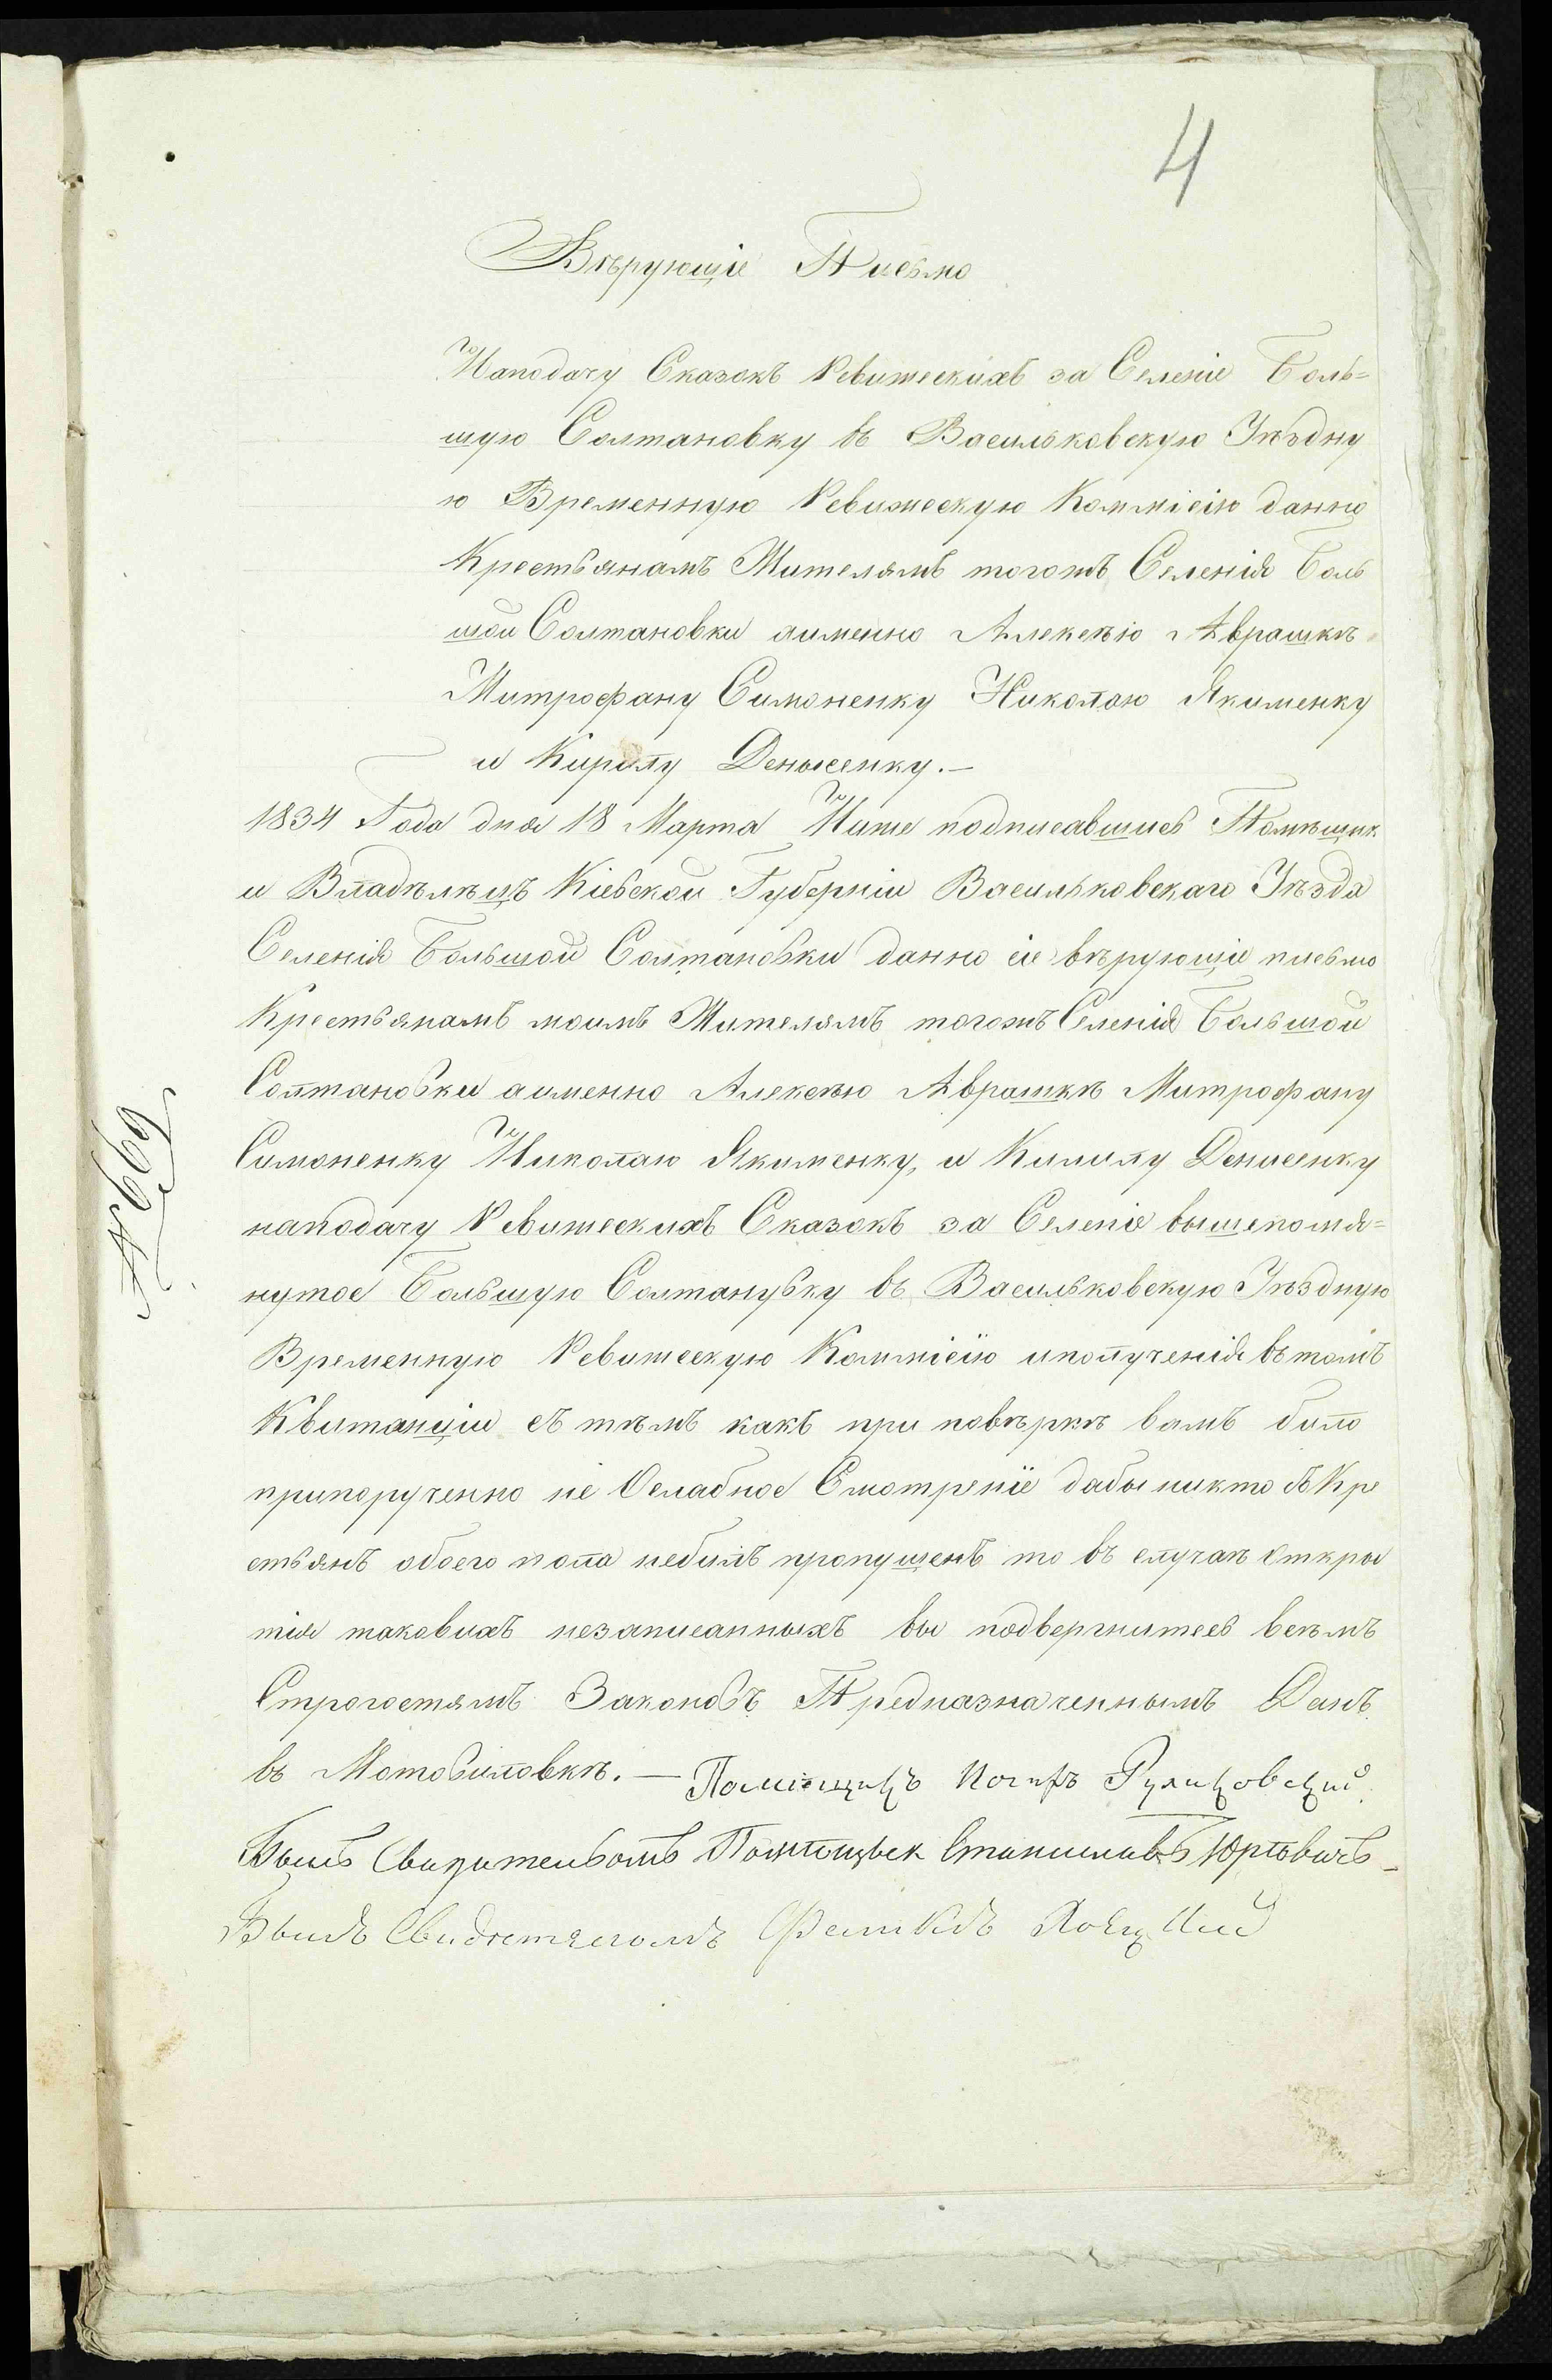 4
Вѣрующіе Письмо
Наподачу Сказокъ Ревижескихъ за Селеніе Боль=
шую Солтановку въ Васильковскую Уѣздну
ю Временную Ревижескую Коммісію данно
Крестьянамъ Жителямъ тогожъ Селенія Боль
шой Солтановки аименно Алексѣю Аврашкѣ
Митрофану Симоненку Николаю Якименку
и Кирилу Денысенку.—
1834 Года дня 18 Марта Ниже подписавшись Помѣщик
и Владѣлѣцъ Кіевской Губерніи Васильковскаго Уѣзда
Селенія Большой Солтановки данно сіе вѣрующіе письмо
Крестьянамъ моимъ Жителямъ тогожъ Селенія Большой
Солтановки аименно Алексѣю Аврашкѣ Митрофану
Симоненку Николаю Якименку, и Килилу Денисенку
наподачу Ревижескихъ Сказокъ за Селеніе вышепомя=
нутое Большую Солтанувку въ Васильковскую Уѣздную
Временную Ревижескую Коммісію иполученія въ томъ
Квитанціи съ тѣмъ какъ при повѣркѣ вамъ било
припорученно не Ослабное Смотреніе дабы никто съ Кре
стьянъ обоего пола небилъ пропущенъ то въ случаѣ Откры
тія таковихъ незаписанныхъ вы подвергнитесь всѣмъ
Строгостямъ Законовъ Предназначеннымъ Данъ
въ Мотовиловкѣ.— Поміщикъ Іосифъ Руликовский
Былъ Свидителѣомъ Помѣщьек Станиславъ Юрѣвичъ
Былъ Свидѣтелѣомъ Феликсъ